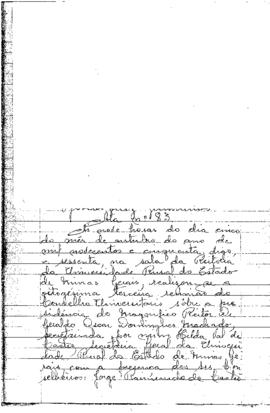 Ata nº 83
Às nove horas do dia cinco
do mês de outubro do ano de
mil novecentos e cinquenta, digo,
e sessenta, na sala da Reitoria
da Universidade Rural do Estado
de Minas Gerais, realizou-se a
octogésima terceira reunião do
Conselho Universitário sôbre a pre
sidência do Magnífico Reitor
Geraldo Oscar Domingues Machado,
secretariada por mim Hilda
Castro, secretária Geral da Universi
dade Rural do Estado de Minas Ge
rais com a presença dos srs. Con
selheiros: Jorge